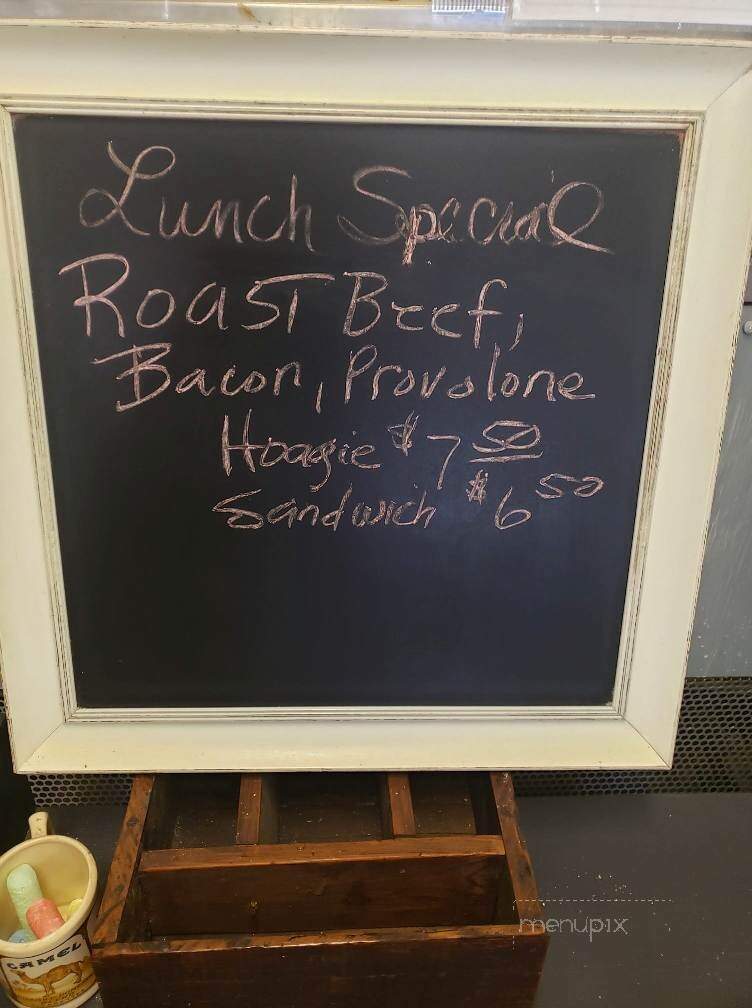 Lunch Special
Roast Beef,
Bacon, Provolone
Hoagie $7 50
Sandwich $6 50
CAMEL
menupix